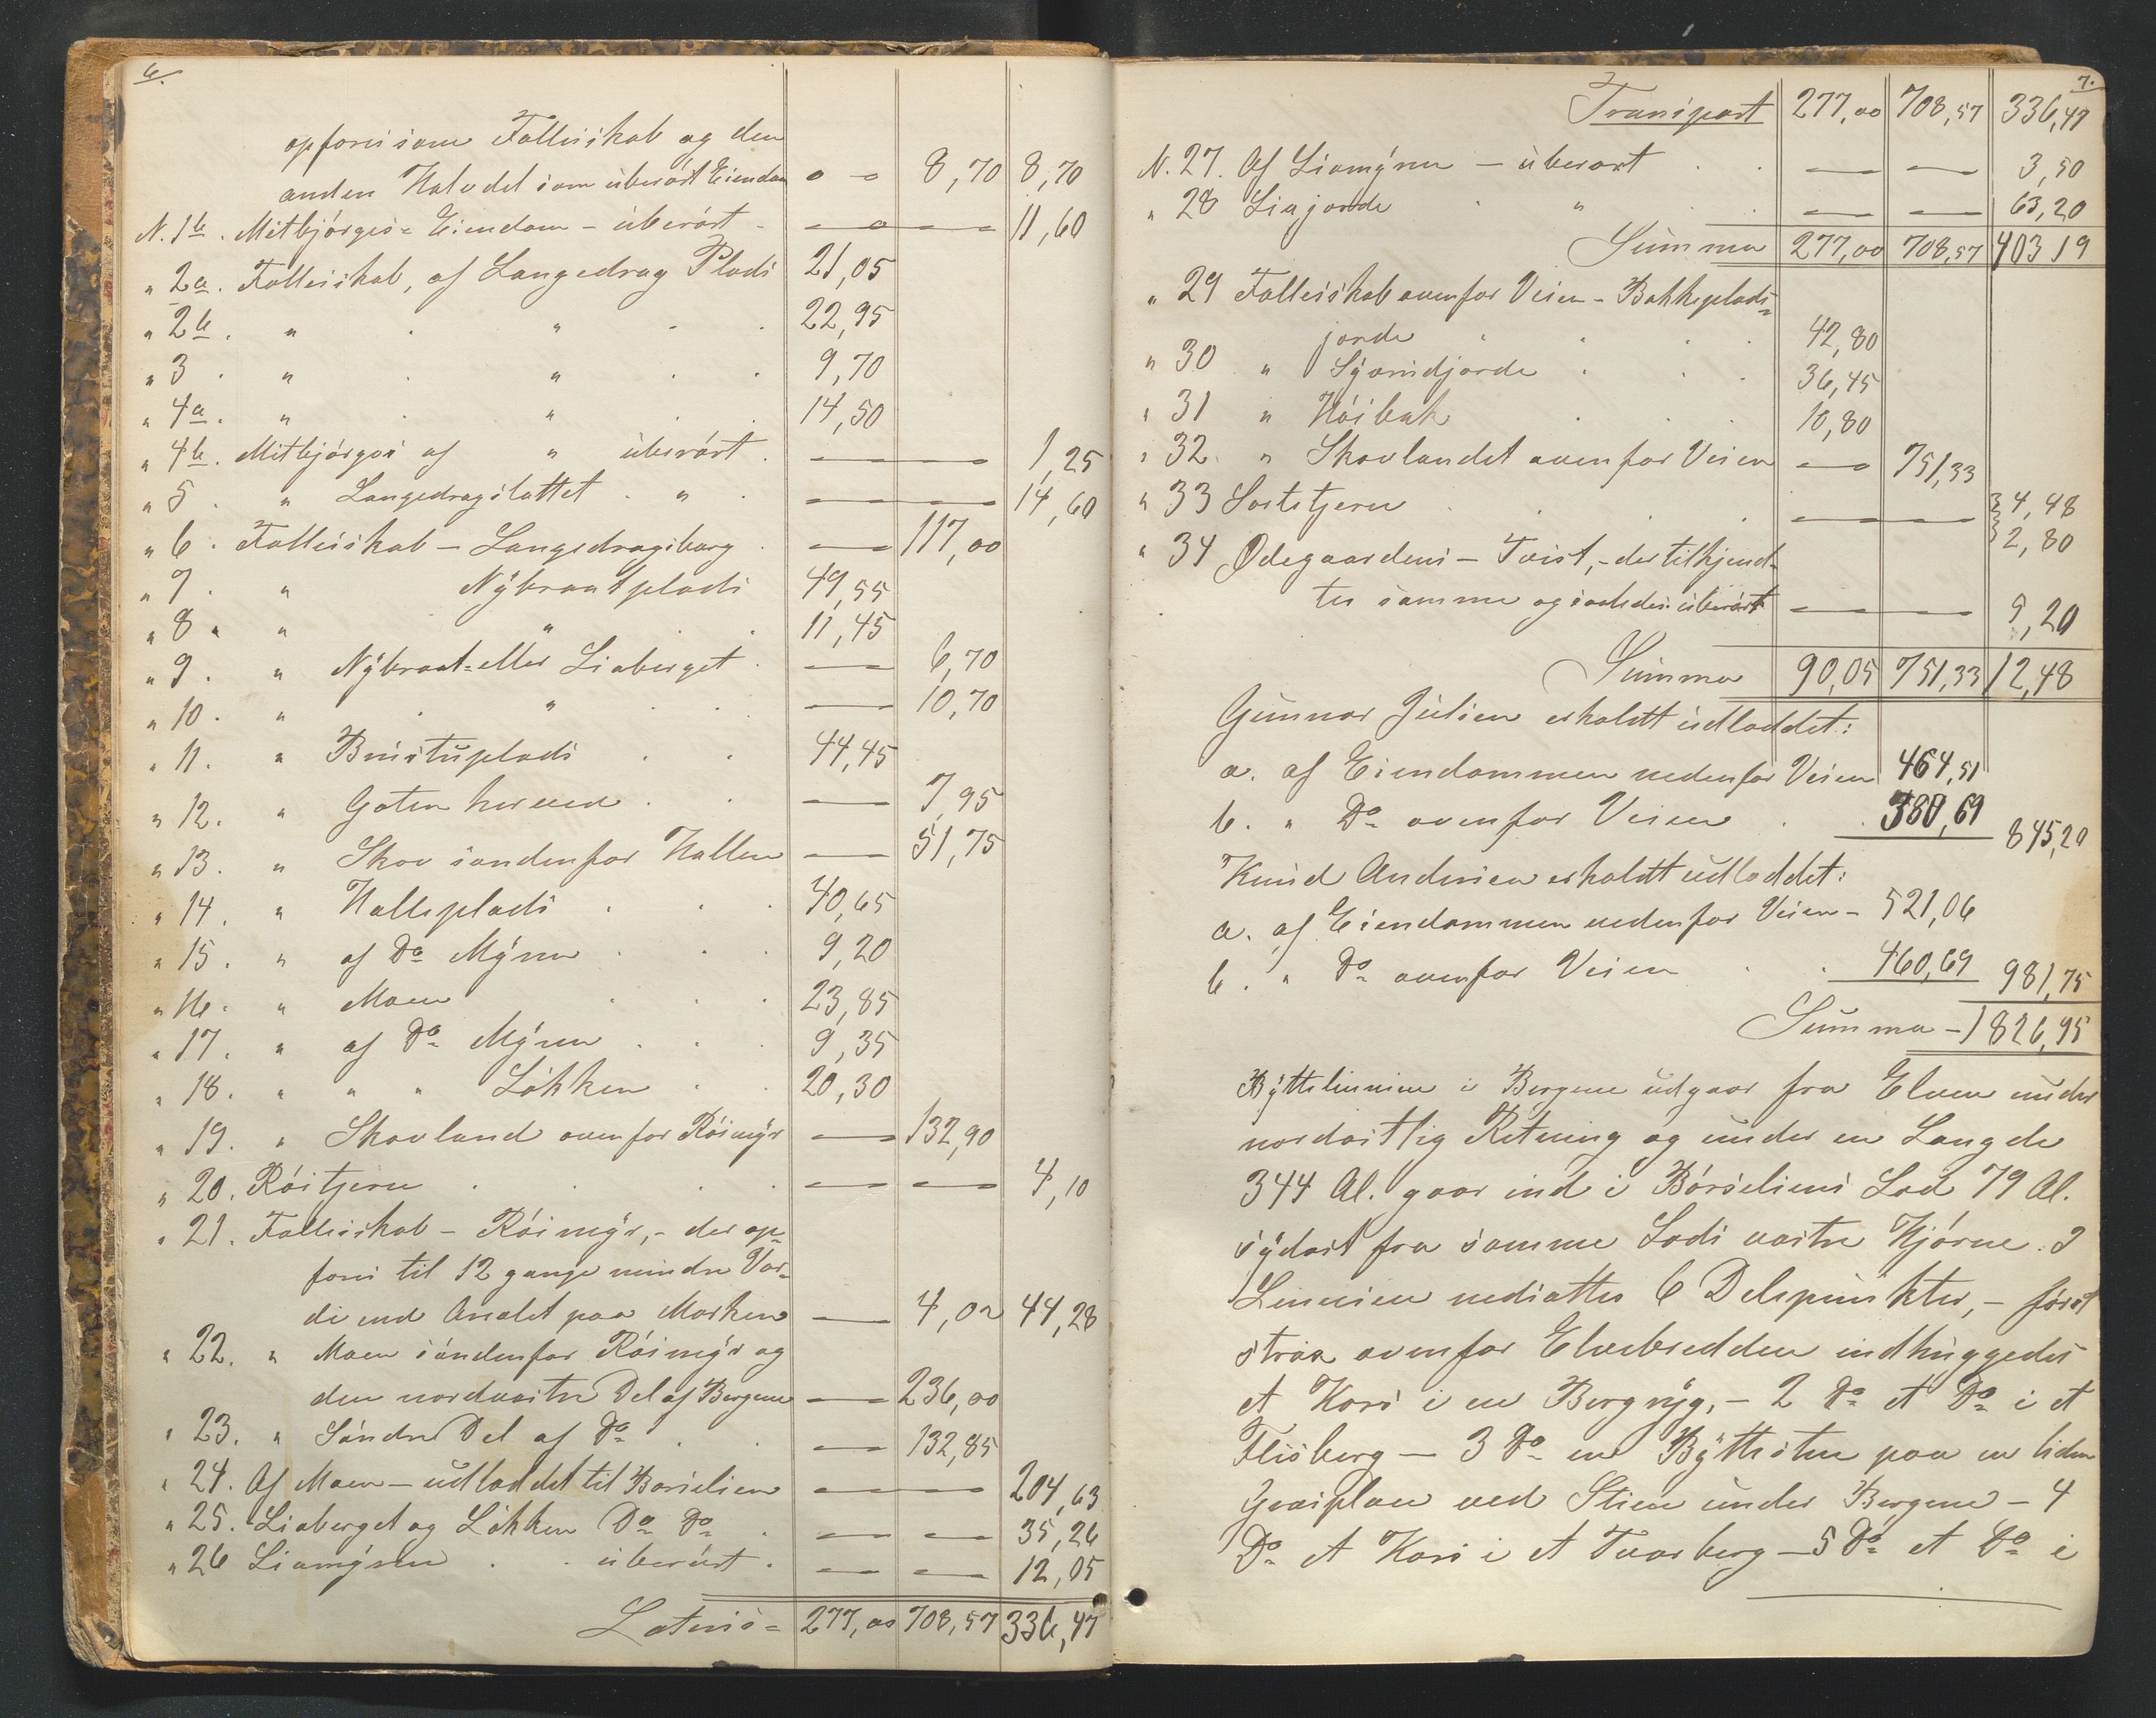 6.
opføres som Fælleskab og den
anden Halvdel som uberørt Eiendom — — 8,70 8,70
N. 1b. Mitbjørges- Eiendom - uberørt - — — 11,60
" 2a. Fælleskab, af Langedrag Plads 21,05
" 2b. " " 22,95
" 3. " " 9,70
" 4a. " " 14,50
" 4b. Mitbjørges af " uberørt — — 1,25
" 5. " Langedragslættet " — — 14,60
" 6. Fælleskab - Langedragsberg — 117,00
" 7. " Nÿbraatplads 49,55
" 8. " " 11,45
" 9. " Nÿbraat- eller Liaberget — 6,70
" 10. " " — 10,70
" 11. " Brustuplads 44,45
" 12. " — 7,95
" 13. " Skov søndenfor Hallen — 51,75
" 14. " Halleplads 40,65
" 15. " af Do Mÿren 9,20
" 16. " Moen 23,85
" 17. " af Do Mÿren 9,35
" 18. " " " Løkken 20,30
" 19. " Skovland ovenfor Røimÿr — 132,90
" 20. Røitjern — — 4,10
" 21. Fælleskab - Røimÿr, - der op-
føres til 12 gange mindre Vær-
di end Arealet paa Marken — 4,02 44,28
" 22. " Moen søndenfor Røimÿr og
den nordvestre Del af Bergene — 236,00
" 23. " Søndre Del af Do — 132,85
" 24. Af Moen - udloddet til Børselien — — 204,63
" 25. Liaberget og Løkken Do Do — — 35,26
" 26 Liamÿren uberørt — — 12,05
Lateris = 277,00 708,57 336,47
7.
Transport 277,00 708,57 336,47
N. 27. Af Liamÿren - uberørt — — 3,50
" 28 Liajorde " — — 63,20
Summa 277,00 708,57 403 19
" 29 Fælleskab ovenfor Veien - Bakkeplads-
jorde 42,80
" 30 " Sÿvrudjorde 36,45
" 31 " Høibak 10,80
" 32. " Skovlandet ovenfor Veien — 751,33
" 33 Sortetjern — — 4,48
2,80
" 34 Ødegaardens - Tvist, - der tilkjend-
tes samme og saaledes uberørt — — 5,20
Summa 90,05 751,33 12,48
Gunnar Julsen erholdt udloddet:
a. af Eiendommen nedenfor Veien 464,51
b. " Do ovenfor Veien 380,69 845,20
Knud Andersen erholdt udloddet:
a. af Eiendommen nedenfor Veien - 521,06
b. " Do ovenfor Veien 460,69 981,75
Summa - 1826,95
Bÿttelinnien i Bergene udgaar fra Elven under
nordostlig Retning og under en Længde
344 Al. gaar ind i Børseliens Lod 79 Al.
sÿdost fra samme Lods vestre Hjørne. I
Linnien nedsattes 6 Delepunkter, - først
strax ovenfor Elvebredden indhuggedes
et Kors i en Bergrÿg, - 2 Do et Do i et
Flisberg - 3 Do en Bÿttesten paa en liden
Græsplæn ved Stien under Bergene - 4
Do et Kors i et Tværberg - 5 Do et Do i